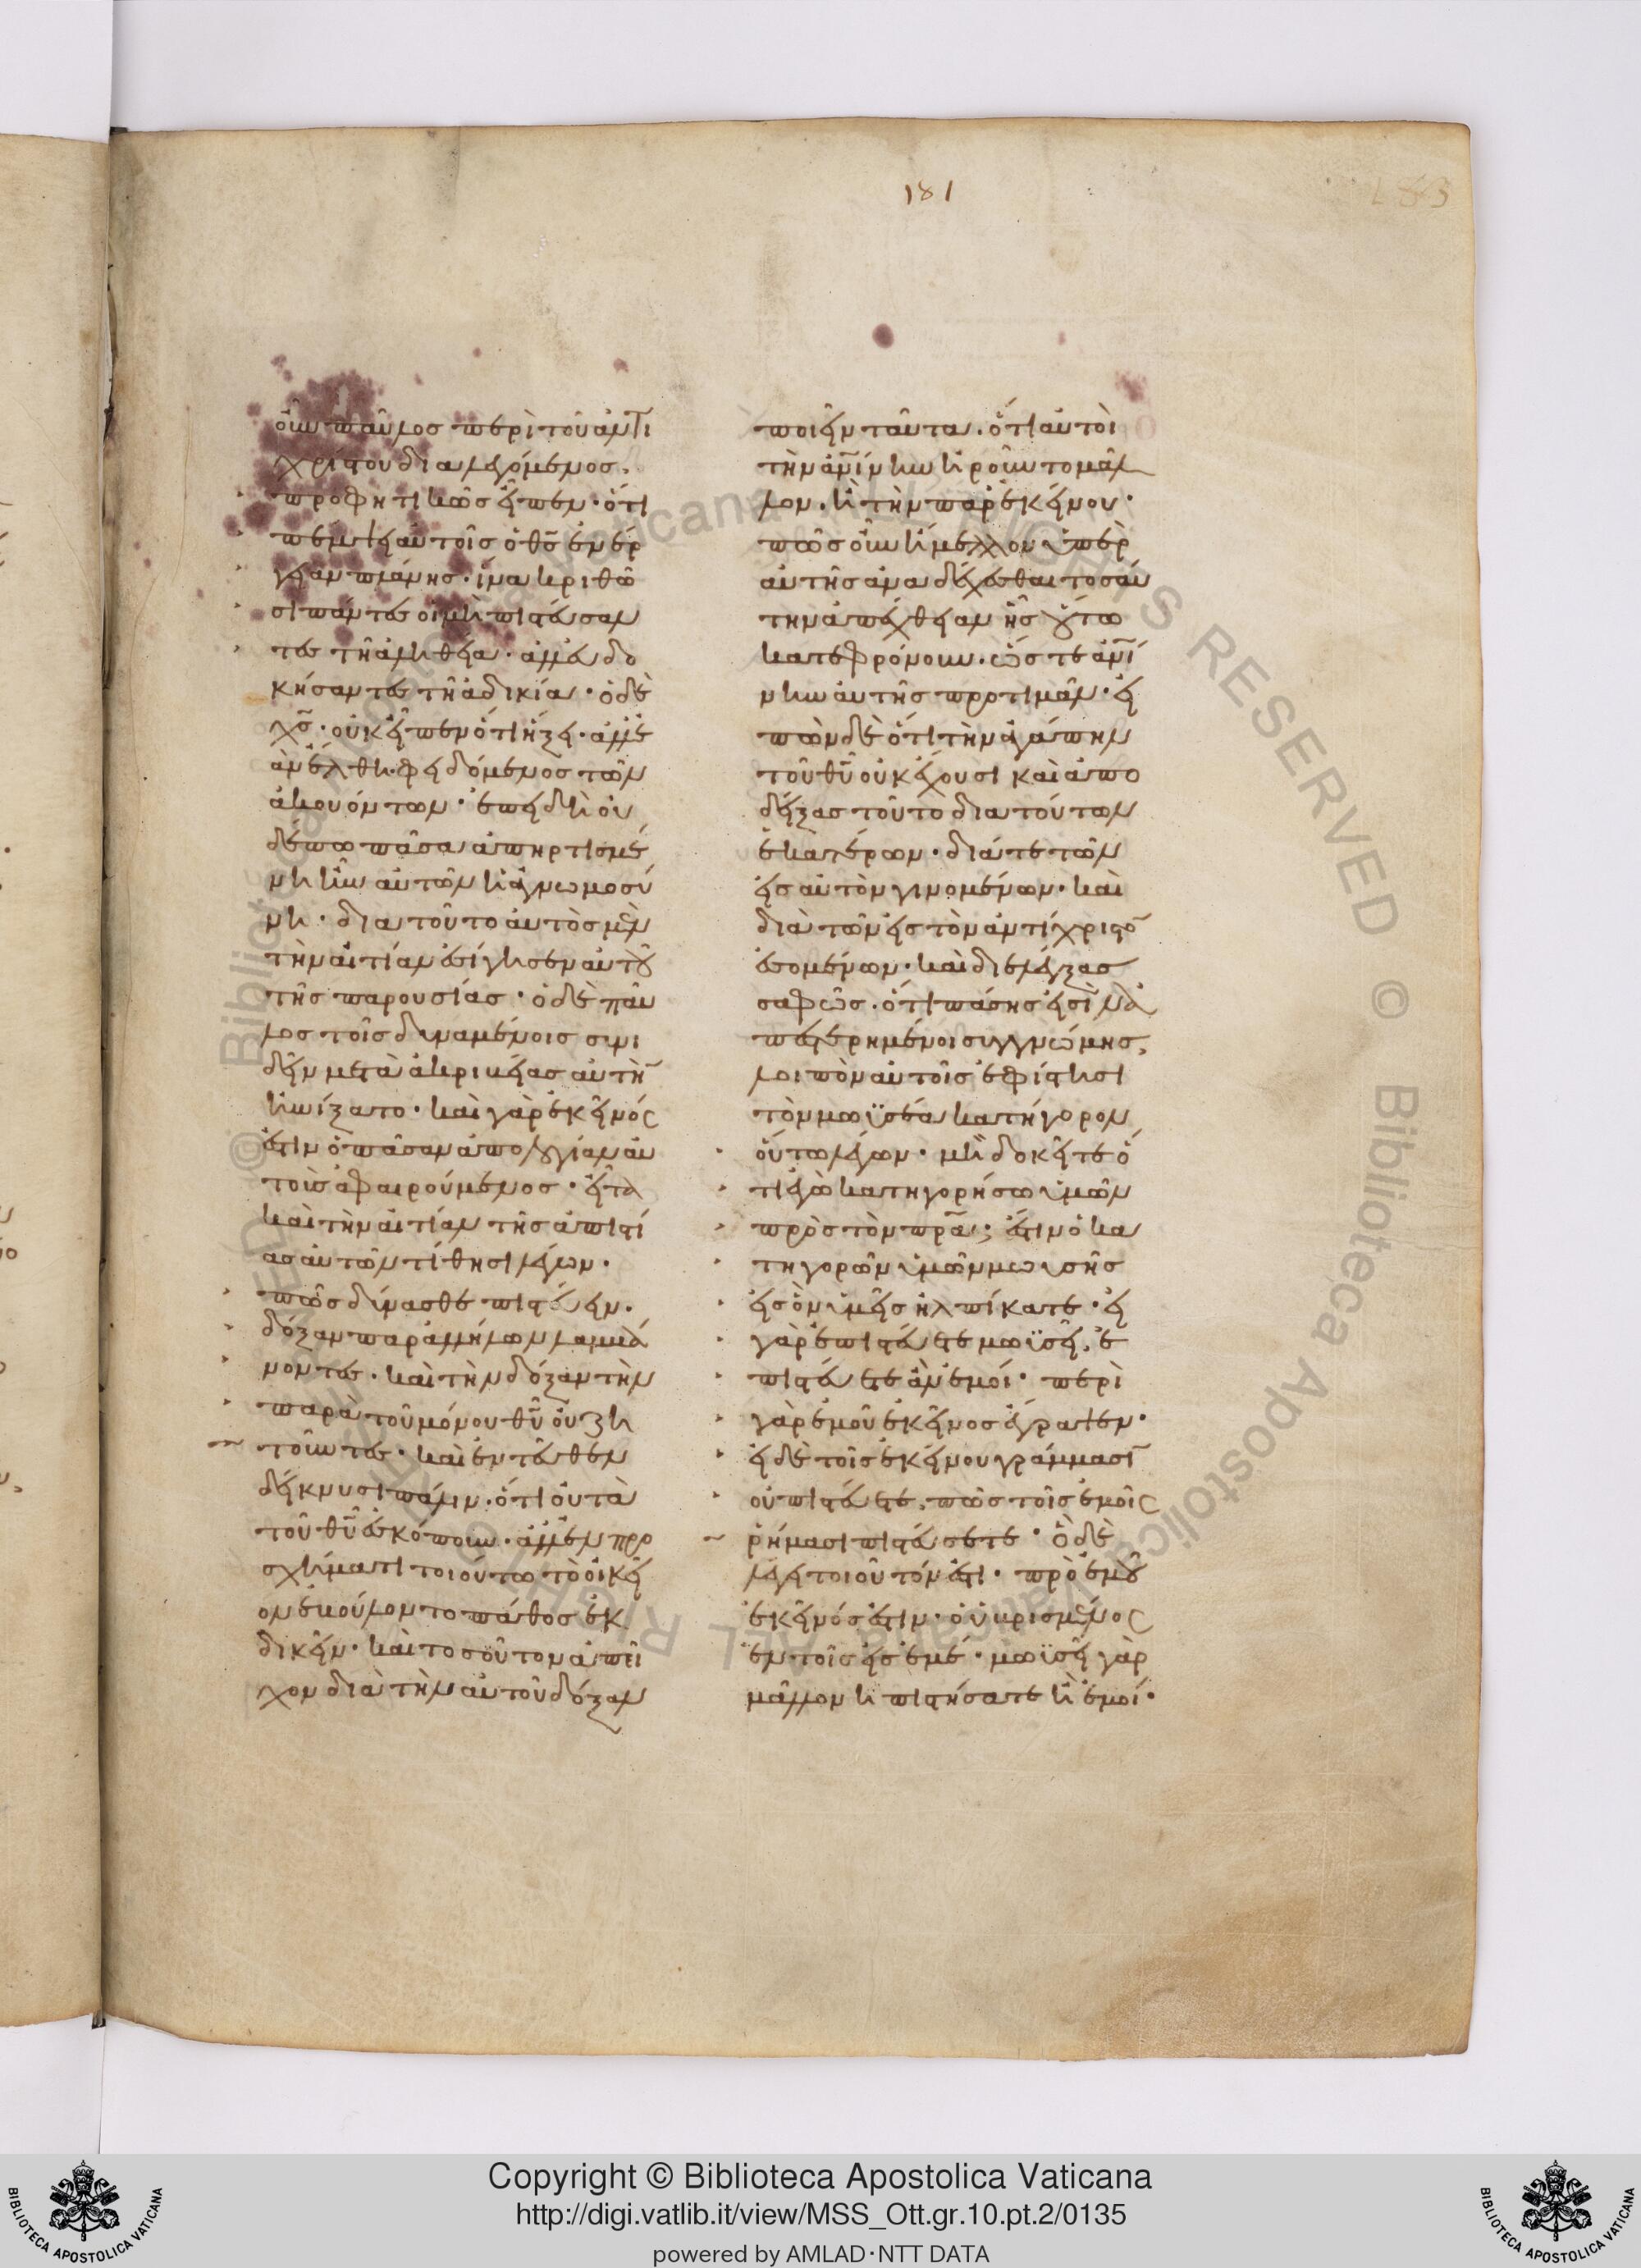 181
οὖν παῦλοσ περὶ τοῦ ἀντι
χρίστου διαλεγόμενοσ.
προφητικῶσ εἶπεν· ὅτι
πέμψει αὐτοῖσ ὁ θσ̅ ἐνέρ
γειαν πλάνησ· ἵνα κριθῶ
σι πάντεσ οἱ μὴ πιστεύσαν
τεσ τῆ ἀληθεία· ἀλλ' εὐδο
κήσαντεσ τῆ ἀδικία· ὁ δὲ
χσ̅· οὐκ εἶπεν ὅτι ἥξει· ἀλλ' ἐ
ὰν ἔλθη. φειδόμενοσ τῶν
ἀκουόντων· ἐπειδὴ οὐ
δέπω πᾶσα ἀπηρτισμέ
νη ἦν αὐτῶν ἡ ἀγνωμοσύ
νη· δια τοῦτο αὐτὸσ μὲν
τὴν αἰτίαν ἐσίγησεν αὐτοῦ
τῆσ παρουσίασ· ὁ δὲ παῦ
λοσ τοῖσ δυναμένοισ συνι
δεῖν μετὰ ἀκριβείασ αὐτὴν
ἠνίξατο· καὶ γὰρ ἐκεῖνόσ
ἐστιν ὁ πᾶσαν ἀπολογίαν αὐ
τοῖσ ἀφαιρούμενοσ· εἶτα
καὶ τὴν αἰτίαν τῆσ ἀπιστί
ασ αὐτῶν τίθησι λέγων·
πῶσ δύνασθε πιστεύειν·
δόξαν παρ' ἀλλήλων λαμβά
νοντεσ· καὶ τὴν δόξαν τὴν
παρὰ τοῦ μόνου θυ̅ οὐ ζη
τοῦντεσ· καὶ ἐντεῦθεν
δείκνυσι πάλιν· ὅτι οὐ τὰ
τοῦ θυ̅ ἐσκόπουν· ἀλλ' ἐν προ
σχήματι τοιούτω τὸ οἰκεῖ
ον ἐβούλοντο πάθοσ ἐκ
δικεῖν· καὶ τοσοῦτον ἀπεῖ
χον διὰ τὴν αὐτοῦ δόξαν
ποιεῖν ταῦτα. ὅτι αὐτοὶ
τὴν ἀνίνην ἡροῦντο μᾶλ
λον. ἢ τὴν παρ' ἐκείνου·
πῶσ οὖν ἤμελλον ὑπὲρ
αὐτῆσ ἀναδέχεσθαι τοσαύ
την ἀπέχθειαν ἧσ οὕτω
κατεφρόνουν. ὥστε ἀνί
νην αὐτῆσ προτιμᾶν· εἰ
πὼν δὲ ὅτι τὴν ἀγάπην
τοῦ θυ̅ οὐκ ἔχουσι καὶ ἀπο
δείξασ τοῦτο δια τούτων
ἑκατέρων· διά τε τῶν
εἰσ αὐτὸν γινομένων· καὶ
διὰ τῶν εἰσ τὸν ἀντίχριστον
ἐσομένων· καὶ διελέγξασ
σαφῶσ. ὅτι πάσησ εἰσὶν ἀ
πεστερημένοι συγγνώμησ,
λοιπὸν αὐτοῖσ ἐφίστησι
τὸν μωϋσέα κατήγορον
οὕτω λέγων· μὴ δοκεῖτε ὅ
τι ἐγὼ κατηγορήσω ὑμῶν
πρὸσ τὸν πρα̅· ἔστιν ὁ κα
τηγορῶν ὑμῶν μωυσῆσ
εἰσ ὃν ὑμεῖσ ἠλπίκατε· εἰ
γὰρ ἐπιστεύετε μωϋσεῖ, ἐ
πιστεύετε ἂν ἐμοί· περὶ
γὰρ ἐμοῦ ἐκεῖνοσ ἔγραψεν·
εἰ δὲ τοῖσ ἐκείνου γράμμασιν
οὐ πιστεύετε. πῶσ τοῖσ ἐμοῖσ
ῥήμασι πιστεύσετε· ὃ δὲ
λέγει τοιοῦτόν ἐστι· πρὸ ἐμοῦ
ἐκεῖνόσ ἐστιν· ὁ ὑβρισμένοσ
ἐν τοῖσ εἰσ ἐμέ· μωϋσεῖ γὰρ
μᾶλλον ἠπιστήσατε ἢ ἐμοί·
Copyright © Biblioteca Apostolica Vaticana
http://digi.vatlib.it/view/MSS_Ott.gr.10.pt.2/0135
powered by AMLAD·NTT DATA
BIBLIOTECA APOSTOLICA VATICANA
BIBLIOTECA APOSTOLICA VATICANA